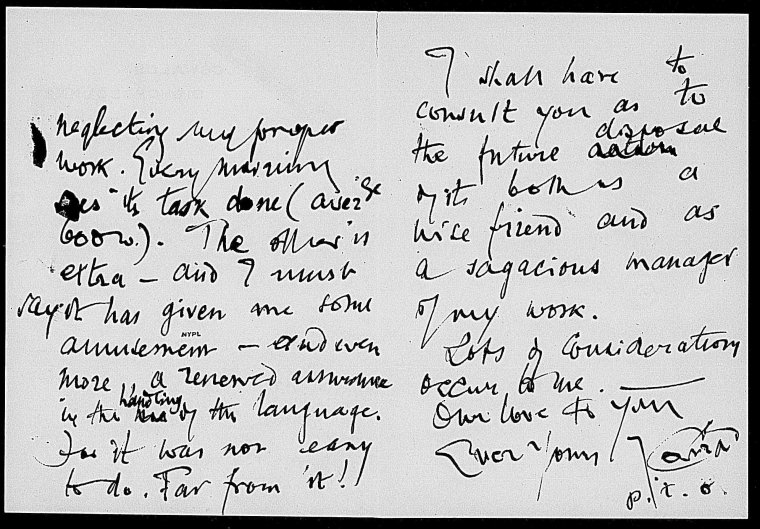 neglecting my proper
work. Every morning
sees its task done (aver'ge
600 w.). The other is
extra – and I must
say it has given me some
amusement – and even
NYPL
more, a renewed assurance
in the handling of the language.
For it was not easy
to do. Far from it!
I shall have to
consult you as to
the future disposal
of it both as a
wise friend and as
a sagacious manager
of my work.
Lots of considerations
occur to me. —
Our love to you
Ever Yours
p.t.o.